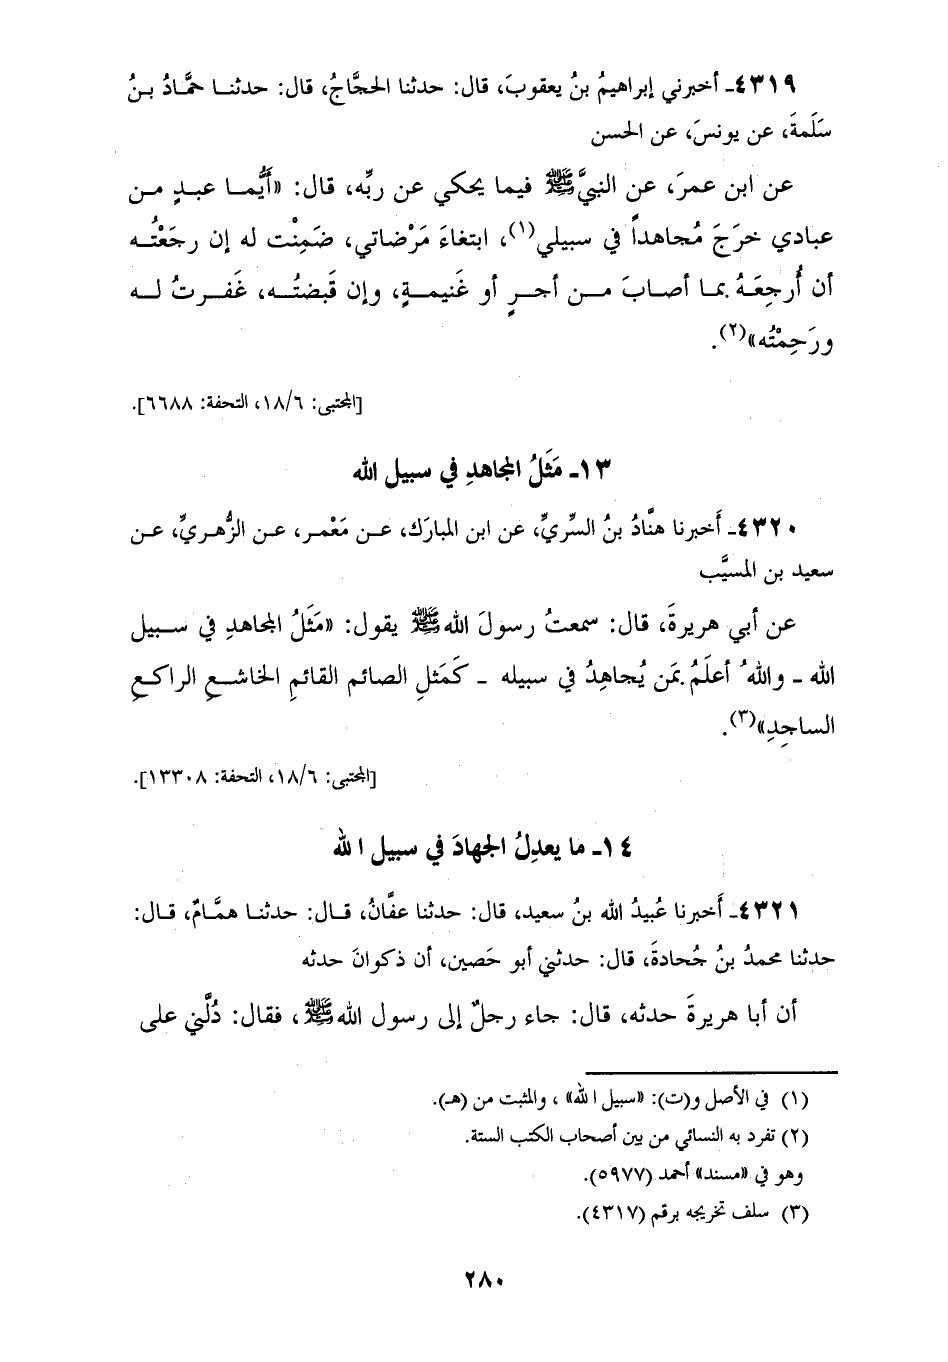 ٤٣١٩ـ أخبرني إبراهيمُ بنُ يعقوبَ، قال: حدثنا الحجَّاجُ، قال: حدثنـا حمَّـادُ بـنُ
سَلَمةَ، عن يونسَ، عن الحسن
عن ابن عمرَ، عن النبيِّ ﷺ فيما يحكي عن ربِّه، قال: «أَيُّمـا عبـدٍ مـن
عبادي خرَجَ مُجاهداً في سبيلي(١)، ابتغاءَ مَرْضاتي، ضَمِنْت له إن رجَعْتُـه
أن أُرجِعَـهُ بمـا أصـابَ مـن أجـرٍ أو غَنيمـةٍ، وإن قَبضتُـه، غَفـرتُ لـه
ورَحِمْتُه»(٢).
[المجتبى: ١٨/٦، التحفة: ٦٦٨٨].
١٣ـ مَثَلُ المجاهدِ في سبيل الله
٤٣٢٠ـ أَخبرنا هنَّادُ بنُ السِّريِّ، عن ابن المبارَك، عـن مَعْمـر، عـن الزُّهـريِّ، عـن
سعيد بن المسيَّب
عن أبي هريرةَ، قال: سمعتُ رسولَ الله ﷺ يقول: «مَثَلُ المجاهدِ في سـبيل
الله ـ واللهُ أعلَمُ بمَن يُجاهِدُ في سبيله ـ كَمَثلِ الصائم القائمِ الخاشـعِ الراكـعِ
الساجِدِ»(٣).
[المجتبى: ١٨/٦، التحفة: ١٣٣٠٨].
١٤ـ ما يعدِلُ الجهادَ في سبيل الله
٤٣٢١ـ أَخبرنا عُبيدُ الله بنُ سعيد، قال: حدثنا عفَّانُ، قـال: حدثنـا همَّـامٌ، قـال:
حدثنا محمدُ بنُ جُحادةَ، قال: حدثني أبو حَصين، أن ذكوانَ حدثه
أن أبا هريرةَ حدثه، قال: جاء رجلٌ إلى رسول الله ﷺ، فقال: دُلَّني على
(١) في الأصل و(ت): «سبيل الله»، والمثبت من (هـ).
(٢) تفرد به النسائي من بين أصحاب الكتب الستة.
وهو في «مسند» أحمد (٥٩٧٧).
(٣) سلف تخريجه برقم (٤٣١٧).
٢٨٠